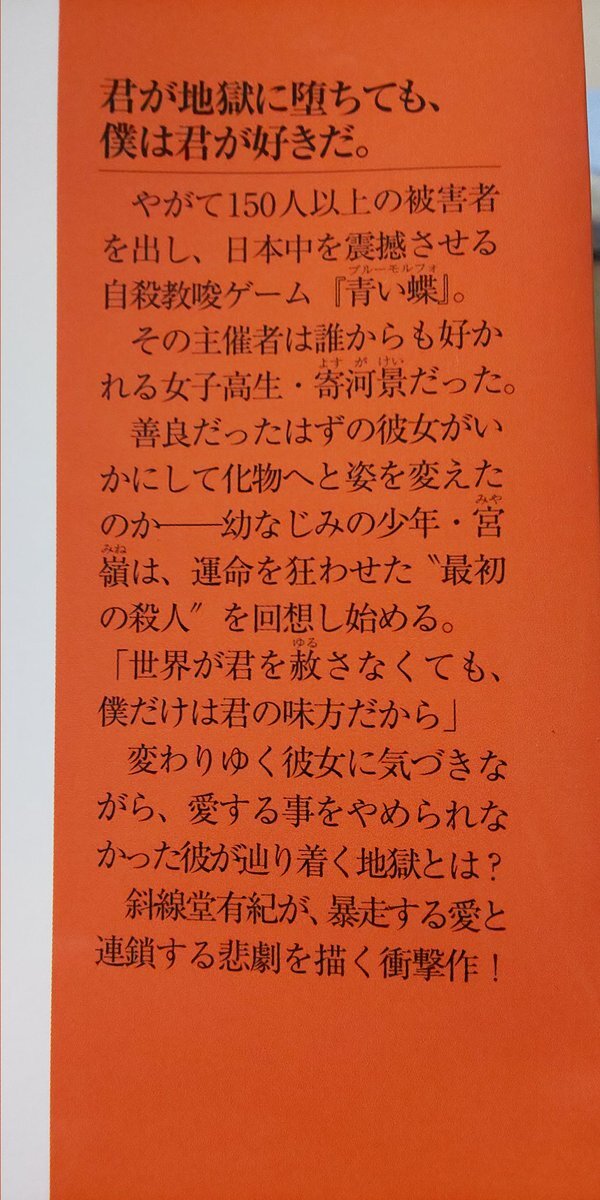 君が地獄に堕ちても、
僕は君が好きだ。
やがて150人以上の被害者
を出し、日本中を震撼させる
ブルーモルフォ
自殺教唆ゲーム『青い蝶』。
その主催者は誰からも好か
よすがけい
れる女子高生・寄河景だった。
善良だったはずの彼女がい
かにして化物へと姿を変えた
みや
のか──幼なじみの少年・宮
みね
嶺は、運命を狂わせた〝最初
の殺人〟を回想し始める。
ゆる
「世界が君を赦さなくても、
僕だけは君の味方だから」
変わりゆく彼女に気づきな
がら、愛する事をやめられな
かった彼が辿り着く地獄とは?
斜線堂有紀が、暴走する愛と
連鎖する悲劇を描く衝撃作!